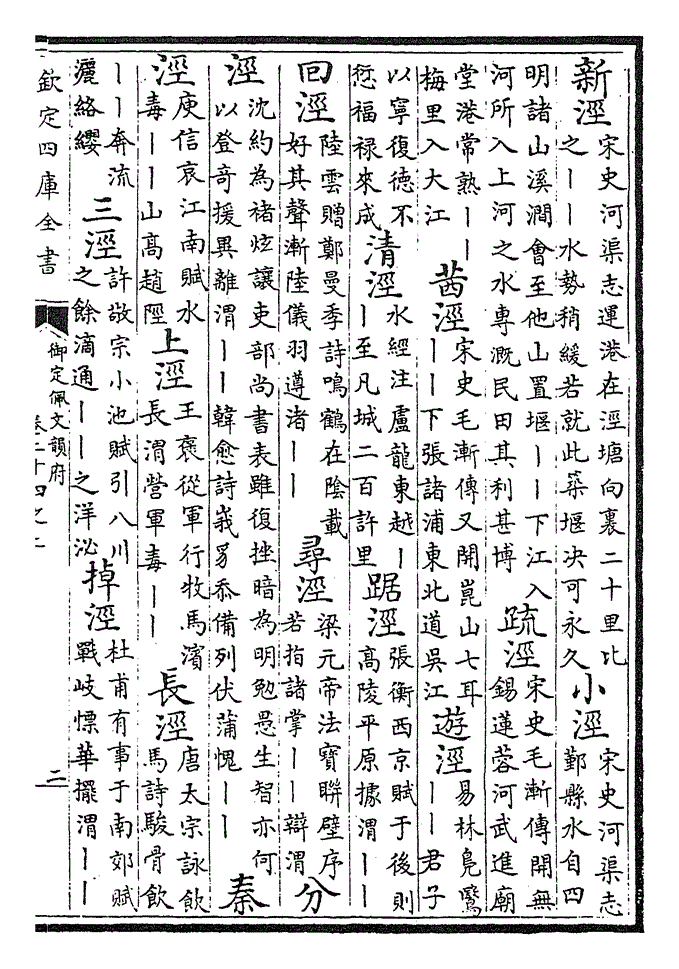 新涇
宋史河渠志運港在涇塘向裏二十里比
之丨丨水勢稍緩若就此築堰決可永久
小涇
宋史河渠志
鄞縣水自四
明諸山溪澗會至他山置堰丨丨下江入
河所入上河之水專溉民田其利甚博
疏涇
宋史毛漸傳開無
錫蓮蓉河武進廟
堂港常熟丨丨
梅里入大江
茜涇
宋史毛漸傳又開崑山七耳
丨丨下張諸浦東北道吳江
遊涇
易林鳧鷖
丨丨君子
以寧復德不
愆福禄來成
清涇
水經注盧龍東越丨
丨至凡城二百許里
踞涇
張衡西京賦于後則
高陵平原據渭丨丨
回涇
陸雲贈鄭曼季詩鳴鶴在陰載
好其聲漸陸儀羽遵渚丨丨
尋涇
梁元帝法寶聯璧序
若指諸掌丨丨辯渭
分
涇
沈約為禇炫讓吏部尚書表雖復挫暗為明勉愚生智亦何
以登奇援異離渭丨丨韓愈詩峩豸忝備列伏蒲愧丨丨
秦
涇
庾信哀江南賦水
毒丨丨山高趙陘
上涇
王褒從軍行牧馬濱
長渭營軍毒丨丨
長涇
唐太宗詠飲
馬詩駿骨飲
丨丨奔流
灑絡纓
三涇
許敬宗小池賦引八川
之餘滴通丨丨之洋泌
掉涇
杜甫有事于南郊賦
戰岐慓華擺渭丨丨
欽定四庫全書
御定佩文韻府
卷二十四之二
二